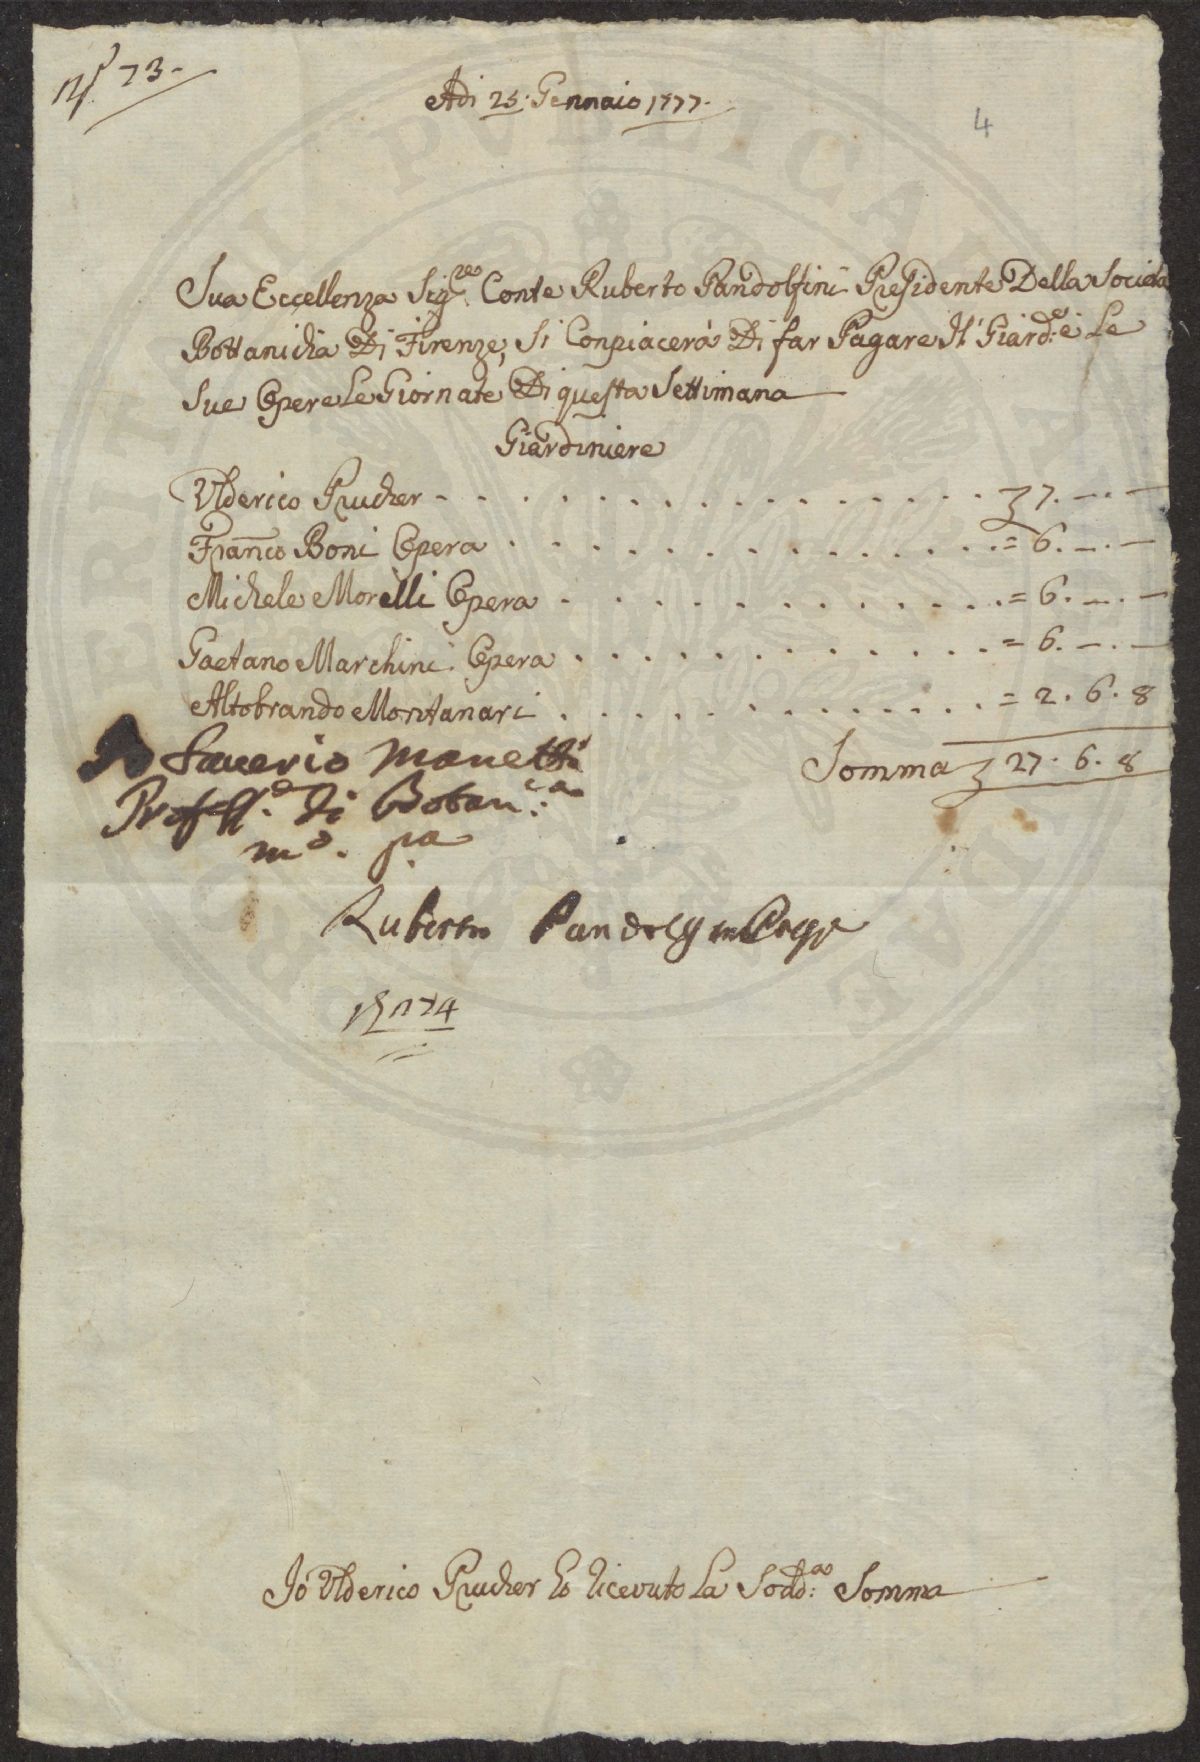 N.° 73.
Adi 25. Gennaio 1777.
4
Sua Eccellenza Sig.re Conte Ruberto Pandolfini Presidente Della Società
Bottanicha Di Firenze, Si Conpiacerà Di far Pagare Il Giard.e e Le
Sue Opere Le Giornate Di questa Settimana
Giardiniere
Ulderico Prucher - . . . . . . . . . . . . . 7. —. —
Franco Boni Opera . . . . . . . . . . . . = 6. —. —
Michele Morelli Opera . . . . . . . . . . . = 6. —. —
Gaetano Marchini Opera . . . . . . . . . . . = 6. —. —
Altobrando Montanari . . . . . . . . . . . = 2. 6. 8
Somma 27. 6. 8
Io Saverio Manetti
Profess.e di Botan.ca
m.o pa
Ruberto Pandolfini
Jó Ulderico Prucher ho Ricevuto La Sodd.a Somma